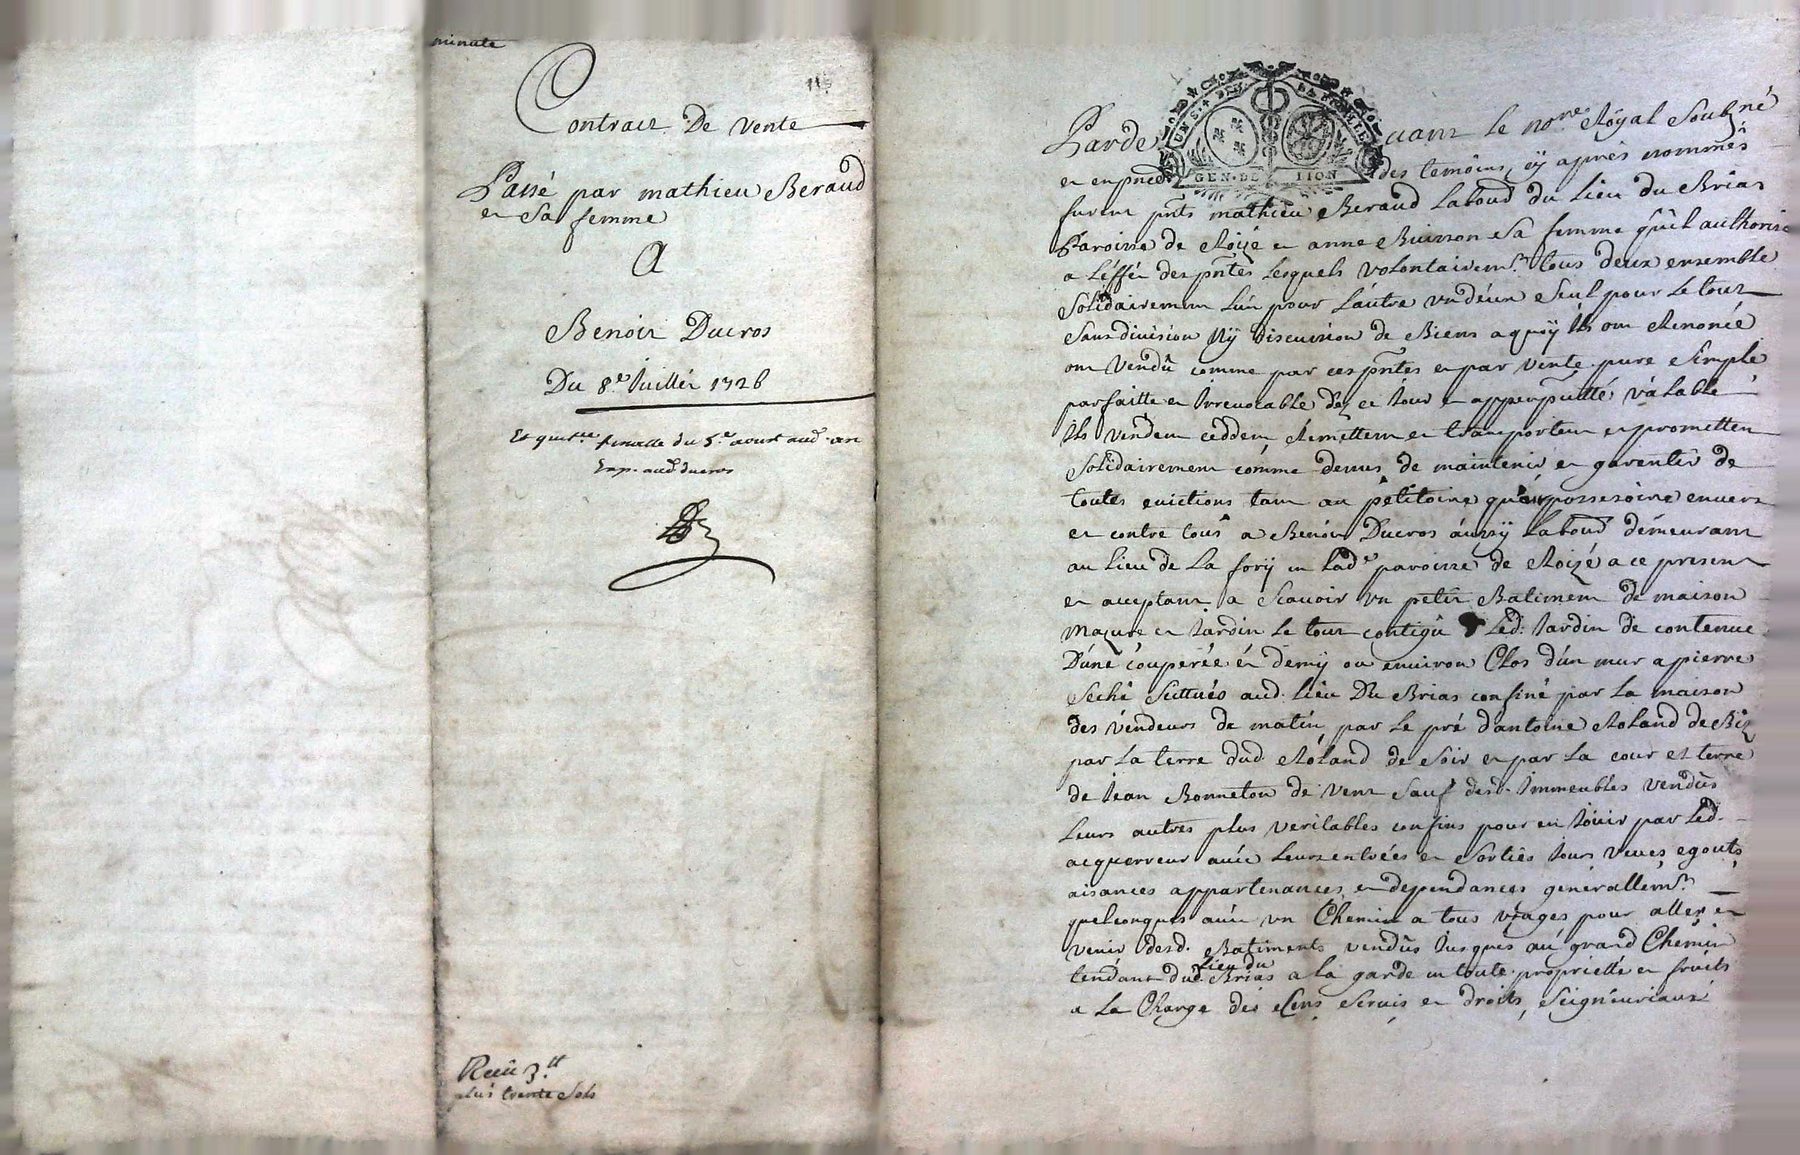 minute
Contract De Vente
Passé par mathieu Beraud
et Sa femme
A
Benoit Ducros
Du 8e Juillet 1726
Et quittce finalle du 5e aoust aud. an
Exp. aud ducros
Receu 3tt
plus trente Sols
Parde vant le nore Royal Soubzné
et en pnce des temoins cy aprés nommés
furent pnts mathieu Beraud Laboud du Lieu du Brias
Paroisse de Roizé et anne Buisson Sa femme qu'il authorise
a L'éffét des pntes Lesquels volontairemt tous deux ensemble
Solidairement L'un pour L'autre un d'eux Seul pour Le tout
Sans division Ny discussion de Biens a quoy ils ont Renoncé
ont Vendû comme par ces pntes et par vente pure Simple
parfaitte et Irrevocable dez ce Jour et a pperpetuitté valable
Ils vendent ceddent Remettent et transportent et promettent
Solidairement comme dessus de maintenir et garentir de
toutes evictions tant au pétitoire qu'au possessoire envers
et contre tous a Benoit Ducros aussy Laboud démeurant
au Lieu de La fory en Lade paroisse de Roizé a ce present
et acceptant a Scavoir un petit Batiment de maison
Mazure et Jardin Le tout contigû Led. Jardin de contenue
D'une couperée et demy ou environ Clos d'un mur a pierre
Seche Sittués aud. Lieu Du Brias confiné par La maison
des vendeurs de matin, par Le pré d'antoine Roland de Biz
par La terre dud Roland de Soir et par La cour et terre
de Jean Bonneton de Vent Sauf desd. Immeubles vendus
Leurs autres plus veritables confins pour en Joüir par Led.
acquerreur avec Leurs entrées et Sorties Jours veues egouts
aisances appartenances et dependances generallemt
quelconques avec un Chemin a tous uzages pour aller et
venir desd. Batiments vendus Jusques au grand Chemin
tendant dud. Lieu du Brias a la garde en toute proprietté et fruits
a La Charge des Cens Servis et droits Seigneuriaux